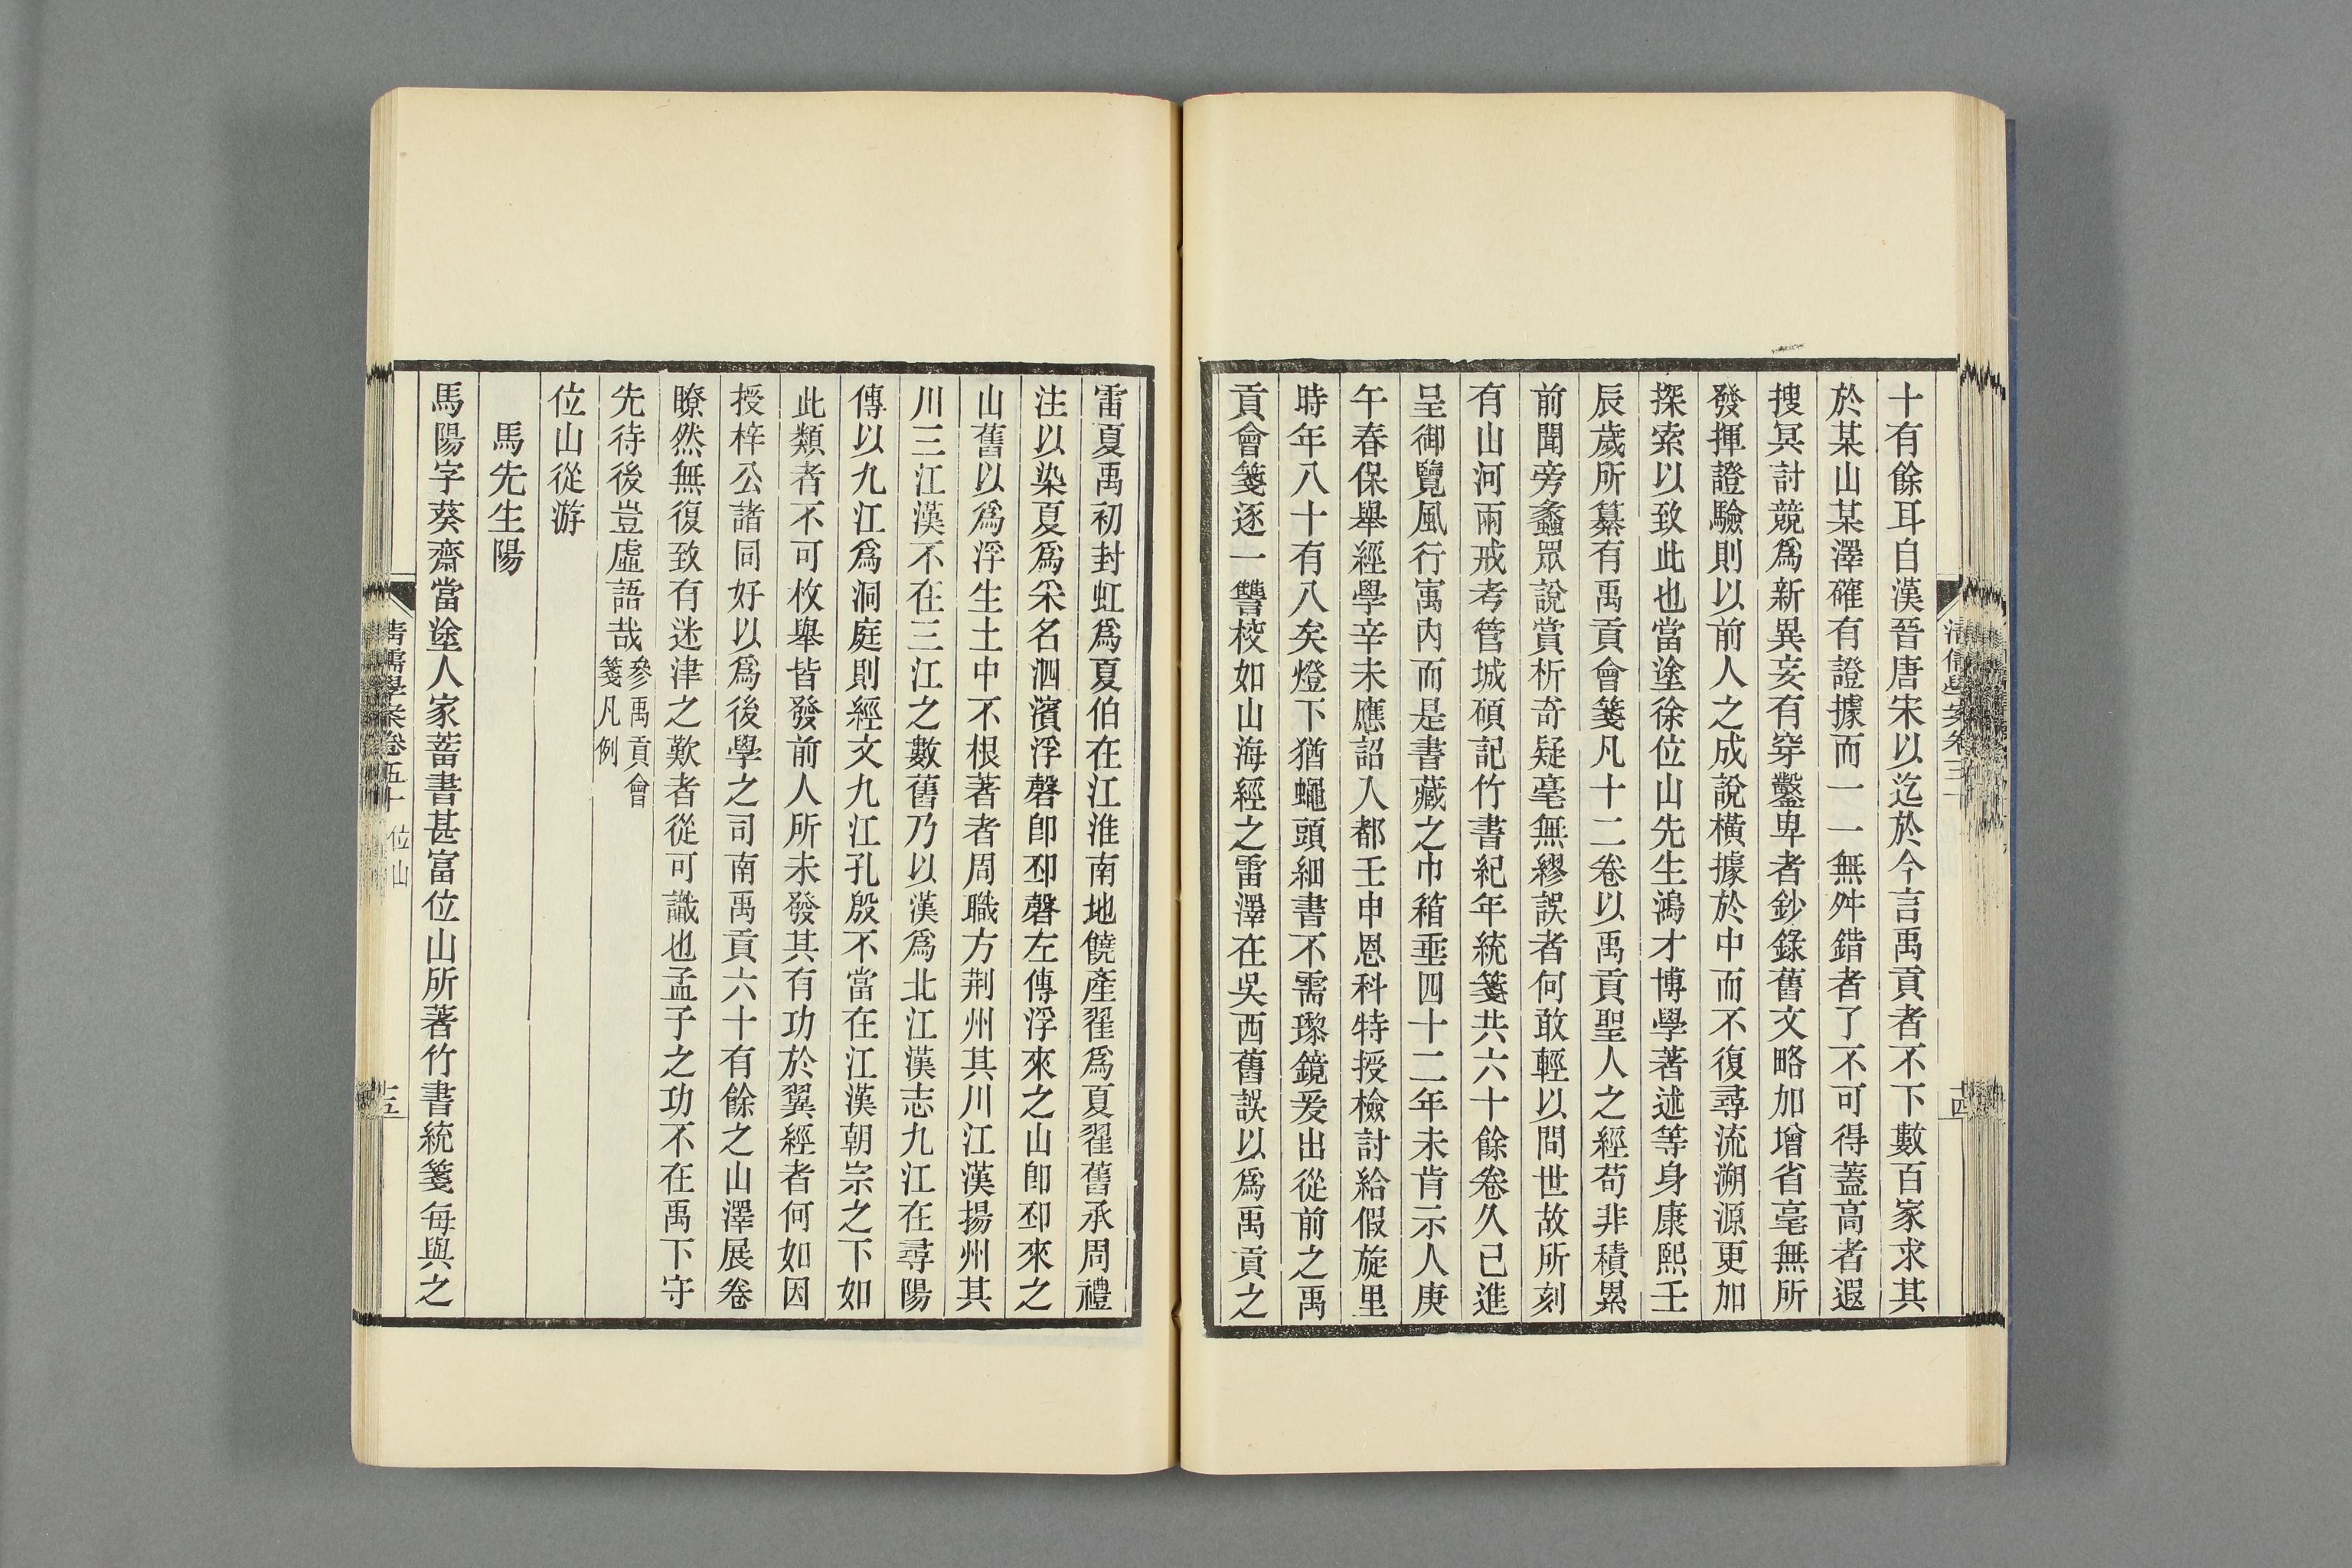 十有餘耳自漢晉唐宋以迄於今言禹貢者不下數百家求其
於某山某澤確有證據而一一無舛錯者了不可得蓋高者遐
搜冥討競爲新異妄有穿鑿卑者鈔錄舊文略加增省毫無所
發揮證驗則以前人之成說橫據於中而不復尋流溯源更加
探索以致此也當塗徐位山先生鴻才博學著述等身康熙壬
辰歲所纂有禹貢會箋凡十二卷以禹貢聖人之經苟非積累
前聞旁蠡眾說賞析奇疑毫無繆誤者何敢輕以問世故所刻
有山河兩戒考管城碩記竹書紀年統箋共六十餘卷久已進
呈御覽風行寓內而是書藏之巾箱垂四十二年未肯示人庚
午春保舉經學辛未應詔入都壬申恩科特授檢討給假旋里
時年八十有八矣燈下猶蠅頭細書不需瓈鏡爰出從前之禹
貢會箋逐一讐校如山海經之雷澤在吳西舊誤以爲禹貢之
十四
雷夏禹初封虹爲夏伯在江淮南地饒產翟爲夏翟舊承周禮
注以染夏爲采名泗濱浮磬卽邳磬左傳浮來之山卽邳來之
山舊以爲浮生土中不根著者周職方荆州其川江漢揚州其
川三江漢不在三江之數舊乃以漢爲北江漢志九江在尋陽
傳以九江爲洞庭則經文九江孔殷不當在江漢朝宗之下如
此類者不可枚舉皆發前人所未發其有功於翼經者何如因
授梓公諸同好以爲後學之司南禹貢六十有餘之山澤展卷
瞭然無復致有迷津之歎者從可識也孟子之功不在禹下守
先待後豈虛語哉參禹貢會
箋凡例
位山從游
馬先生陽
馬陽字葵齋當塗人家蓄書甚富位山所著竹書統箋每與之
清儒學案卷五十 位山
十五